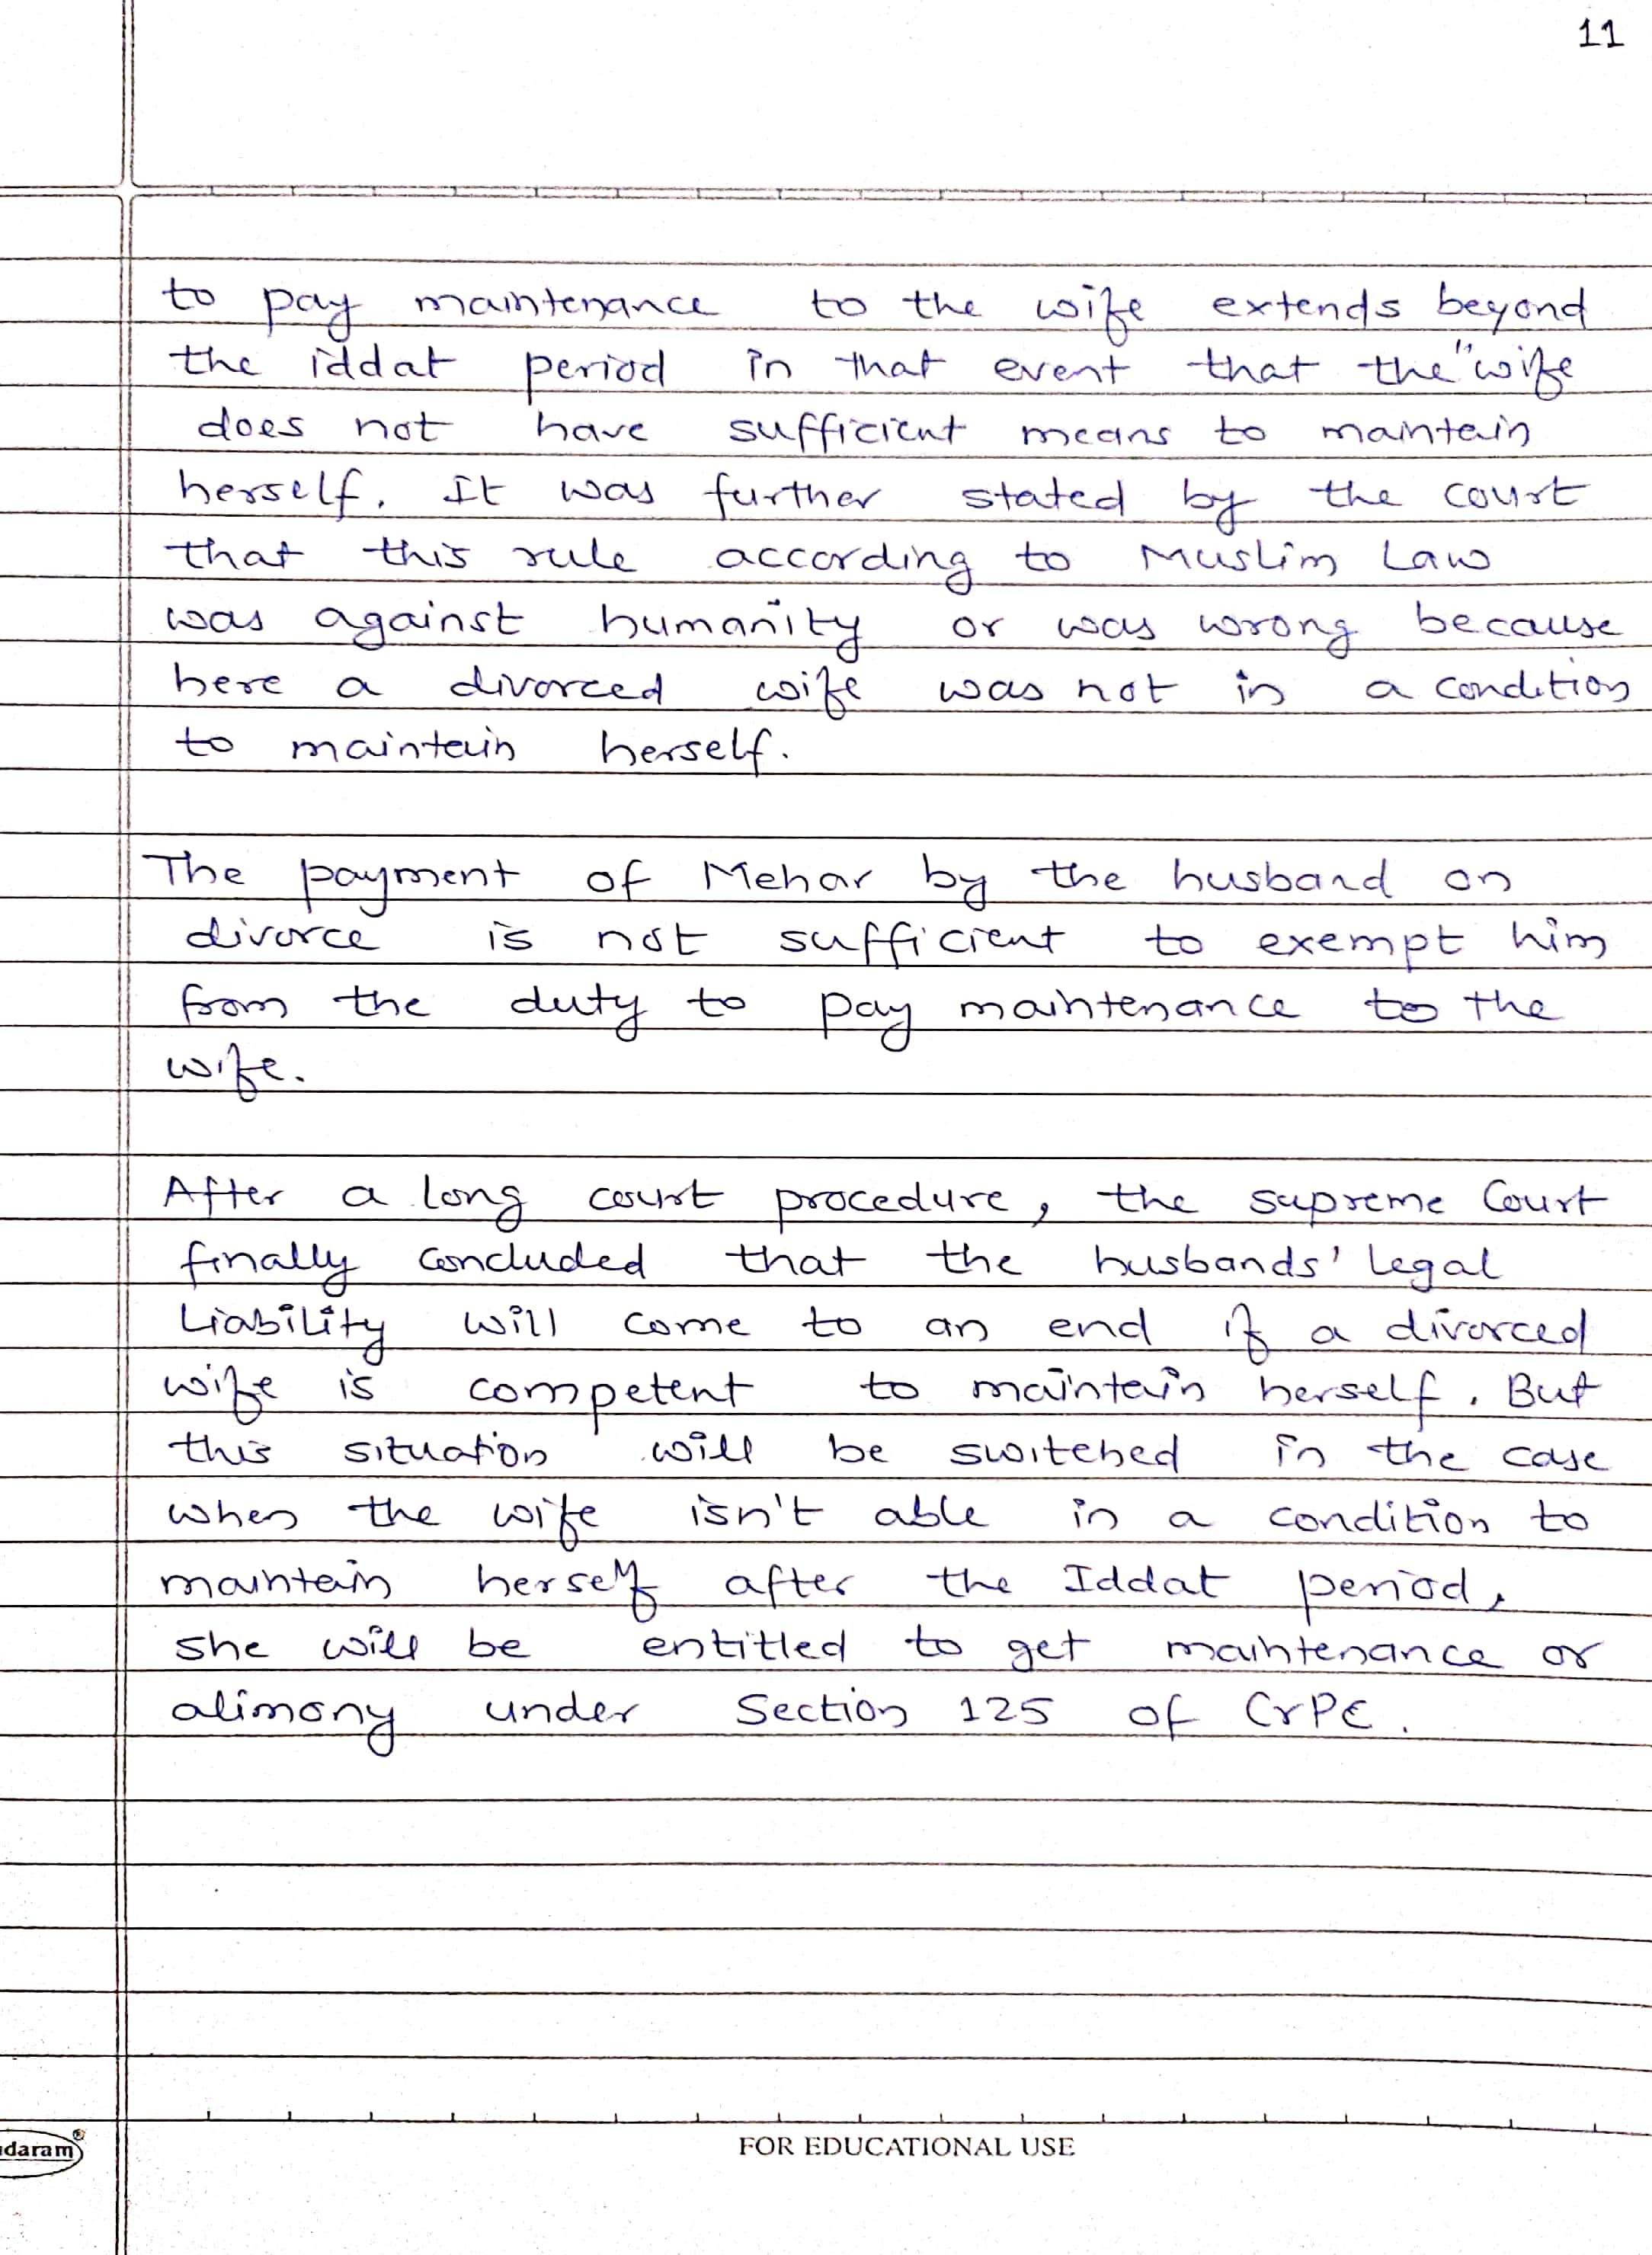 11
to pay maintenance to the wife extends beyond
the iddat period in that event that the "wife
does not have sufficient means to maintain
herself. It was further stated by the court
that this rule according to Muslim Law
was against humanity or was wrong because
here a divorced wife was not in a condition
to maintain herself.
The payment of Mehar by the husband on
divorce is not sufficient to exempt him
from the duty to pay maintenance to the
wife.
After a long court procedure, the supreme Court
finally concluded that the husbands' legal
Liability will come to an end if a divorced
wife is competent to maintain herself. But
this situation will be switched in the case
when the wife isn't able in a condition to
maintain herself after the Iddat period,
she will be entitled to get maintenance or
alimony under Section 125 of CrPC.
daram®
FOR EDUCATIONAL USE